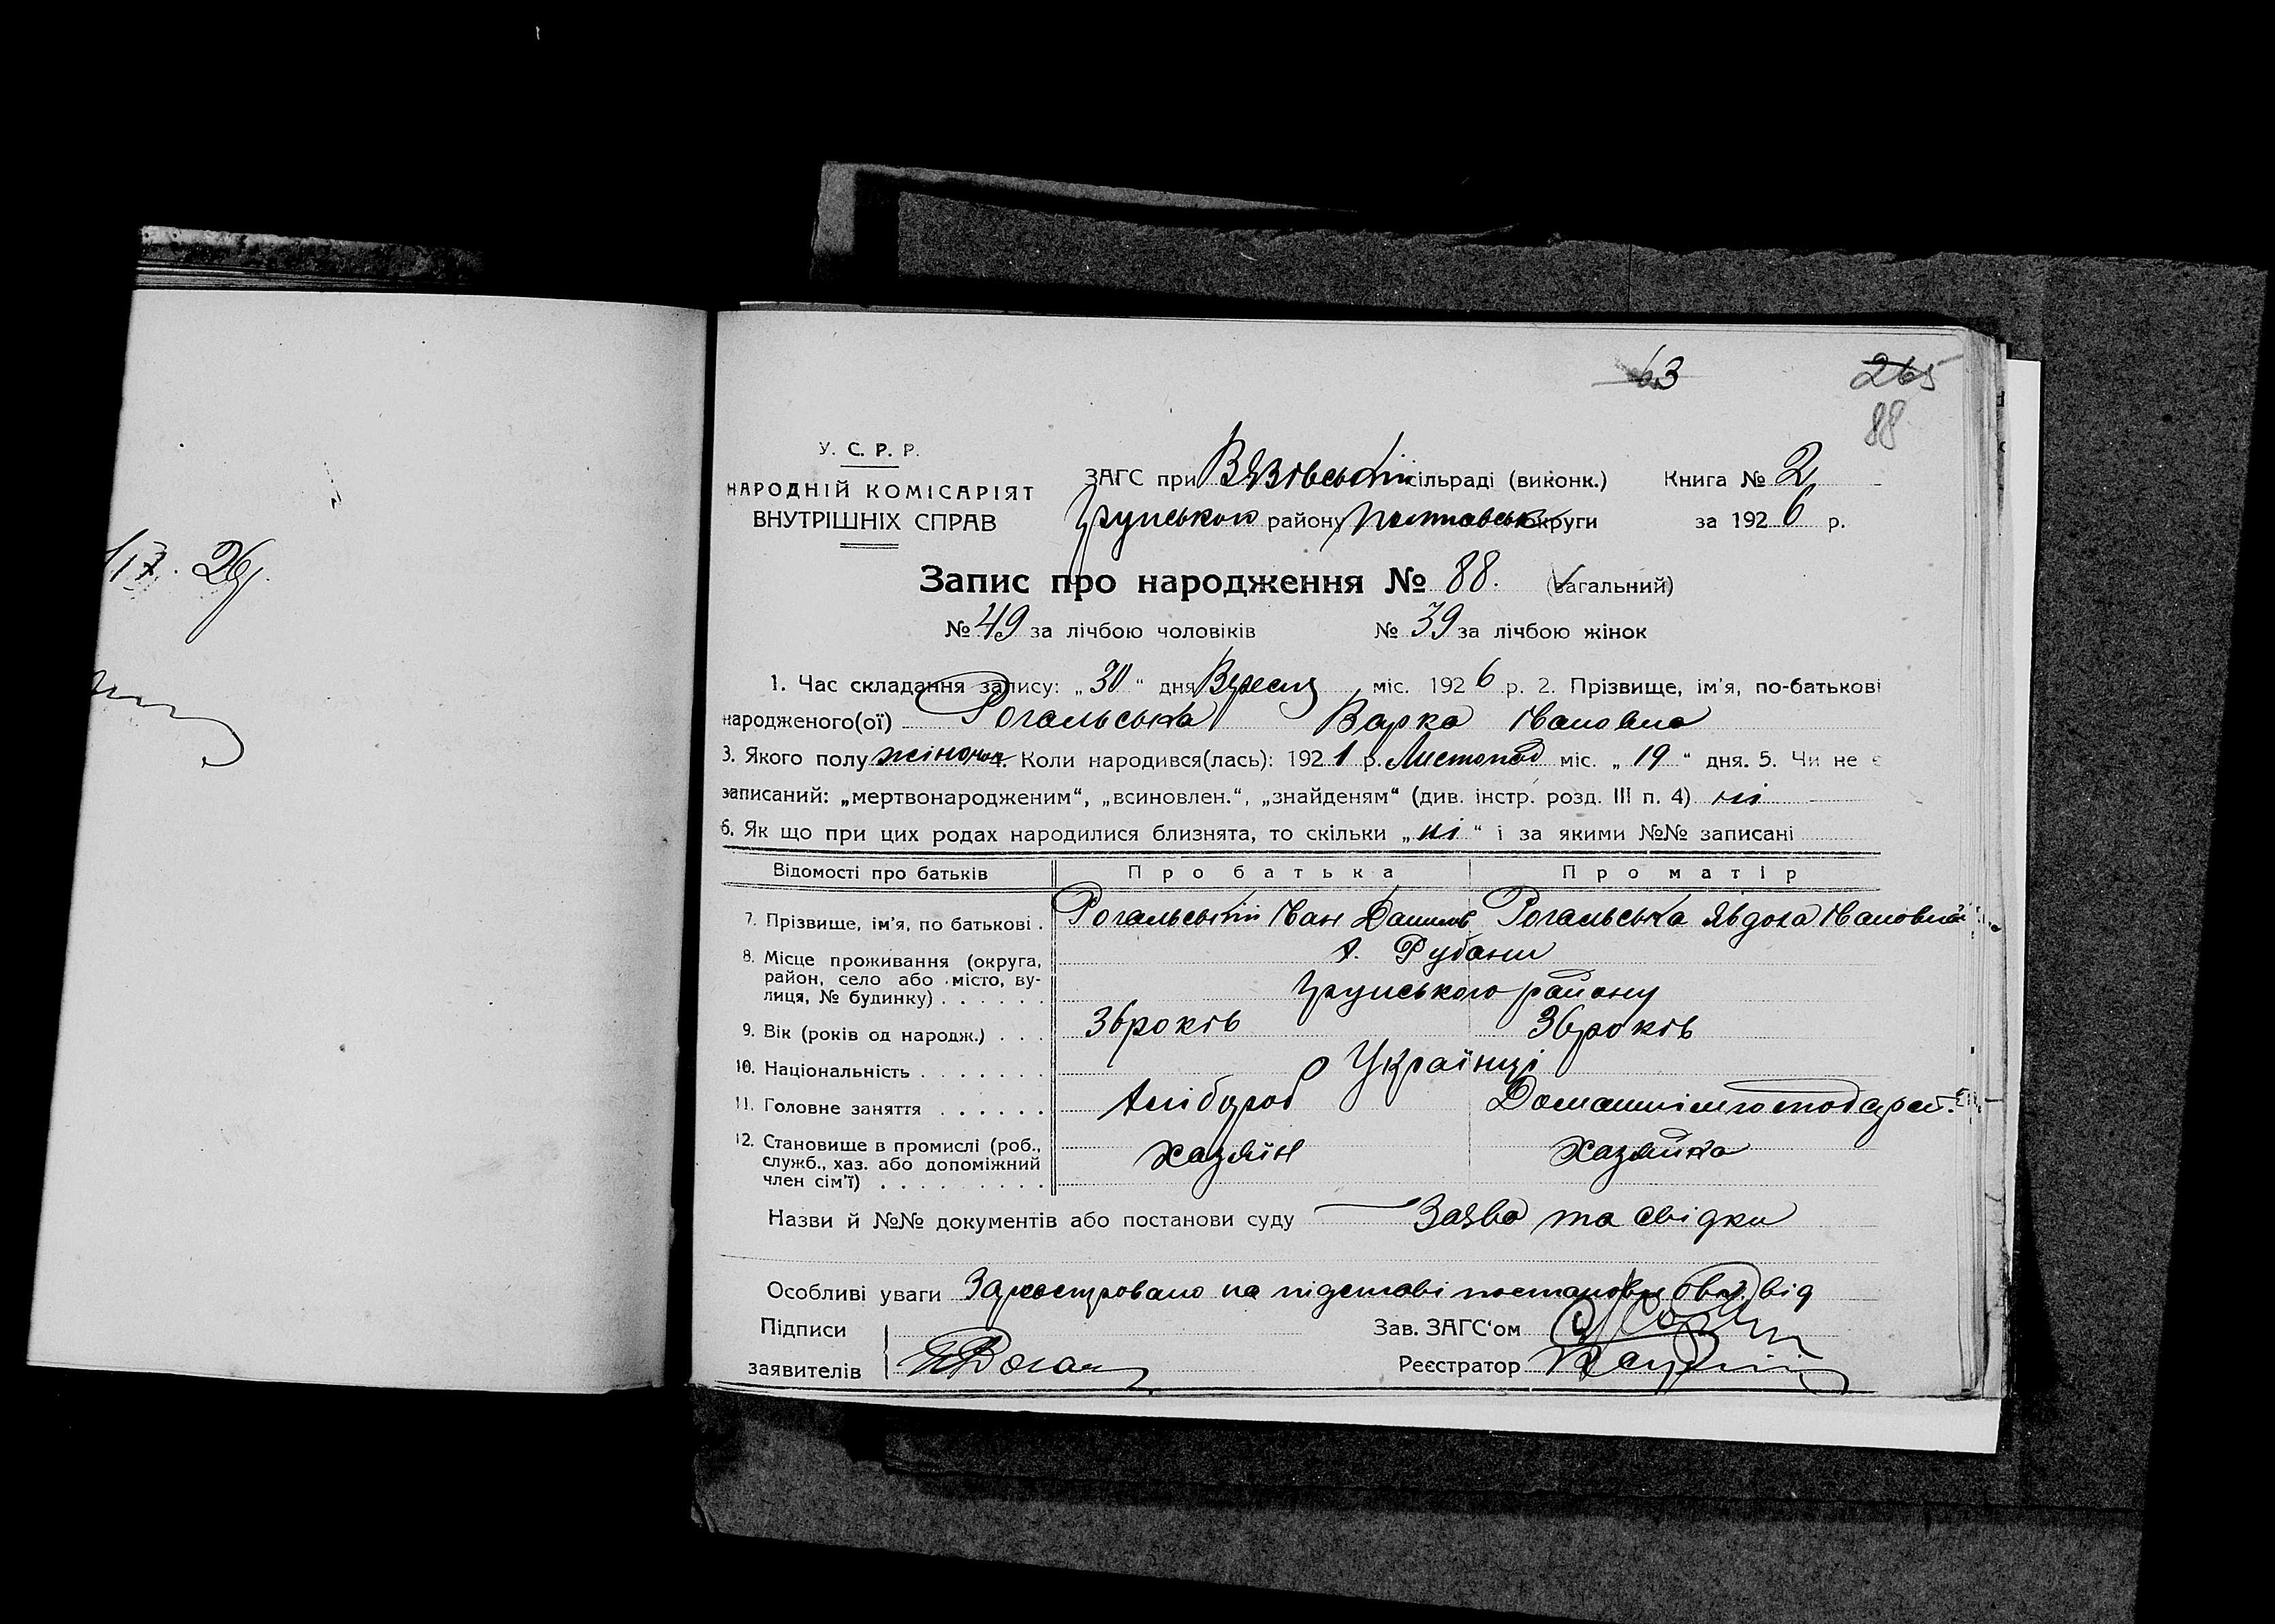 63
265
88
У. С. Р. Р.
НАРОДНІЙ КОМІСАРІЯТ
ВНУТРІШНІХ СПРАВ
ЗАГС при Вязівській сільраді (виконк.) Книга № 2
Грунського району Полтавськ округи за 1926 р.
Запис про народження № 88. (загальний)
№ 49 за лічбою чоловіків № 39 за лічбою жінок
26
1. Час складання запису: „30“ дня Вересня міс. 1926 р. 2. Прізвище, ім'я, по-батькові
народженого(ої) Рогальська Варка Івановна
3. Якого полу жіночо 4. Коли народився(лась): 1921 р. Листопад міс. „19“ дня. 5. Чи не є
записаний: „мертвонародженим“, „всиновлен.“, „знайденям“ (див. інстр. розд. III п. 4) ні
6. Як що при цих родах народилися близнята, то скільки „ні“ і за якими №№ записані
Відомості про батьків Про батька Про матір
7. Прізвище, ім'я, по батькові . Рогальський Іван Данилов Рогальська Явдоха Івановна
8. Місце проживання (округа, х. Рубани
район, село або місто, ву-
лиця, № будинку) . . . . . . Грунського району
9. Вік (років од народж.) . . . 36 років 36 років
10. Національність . . . . . . . Українці
11. Головне заняття . . . . . . Хлібороб Домашнім господарст.
12. Становище в промислі (роб.,
служб., хаз. або допоміжний Хазяїн Хазяйка
член сім'ї) . . . . . . . . .
Назви й №№ документів або постанови суду Заява та свідки
Особливі уваги Зареєстровано на підставі постанови від
Підписи Зав. ЗАГС'ом
заявителів Реєстратор